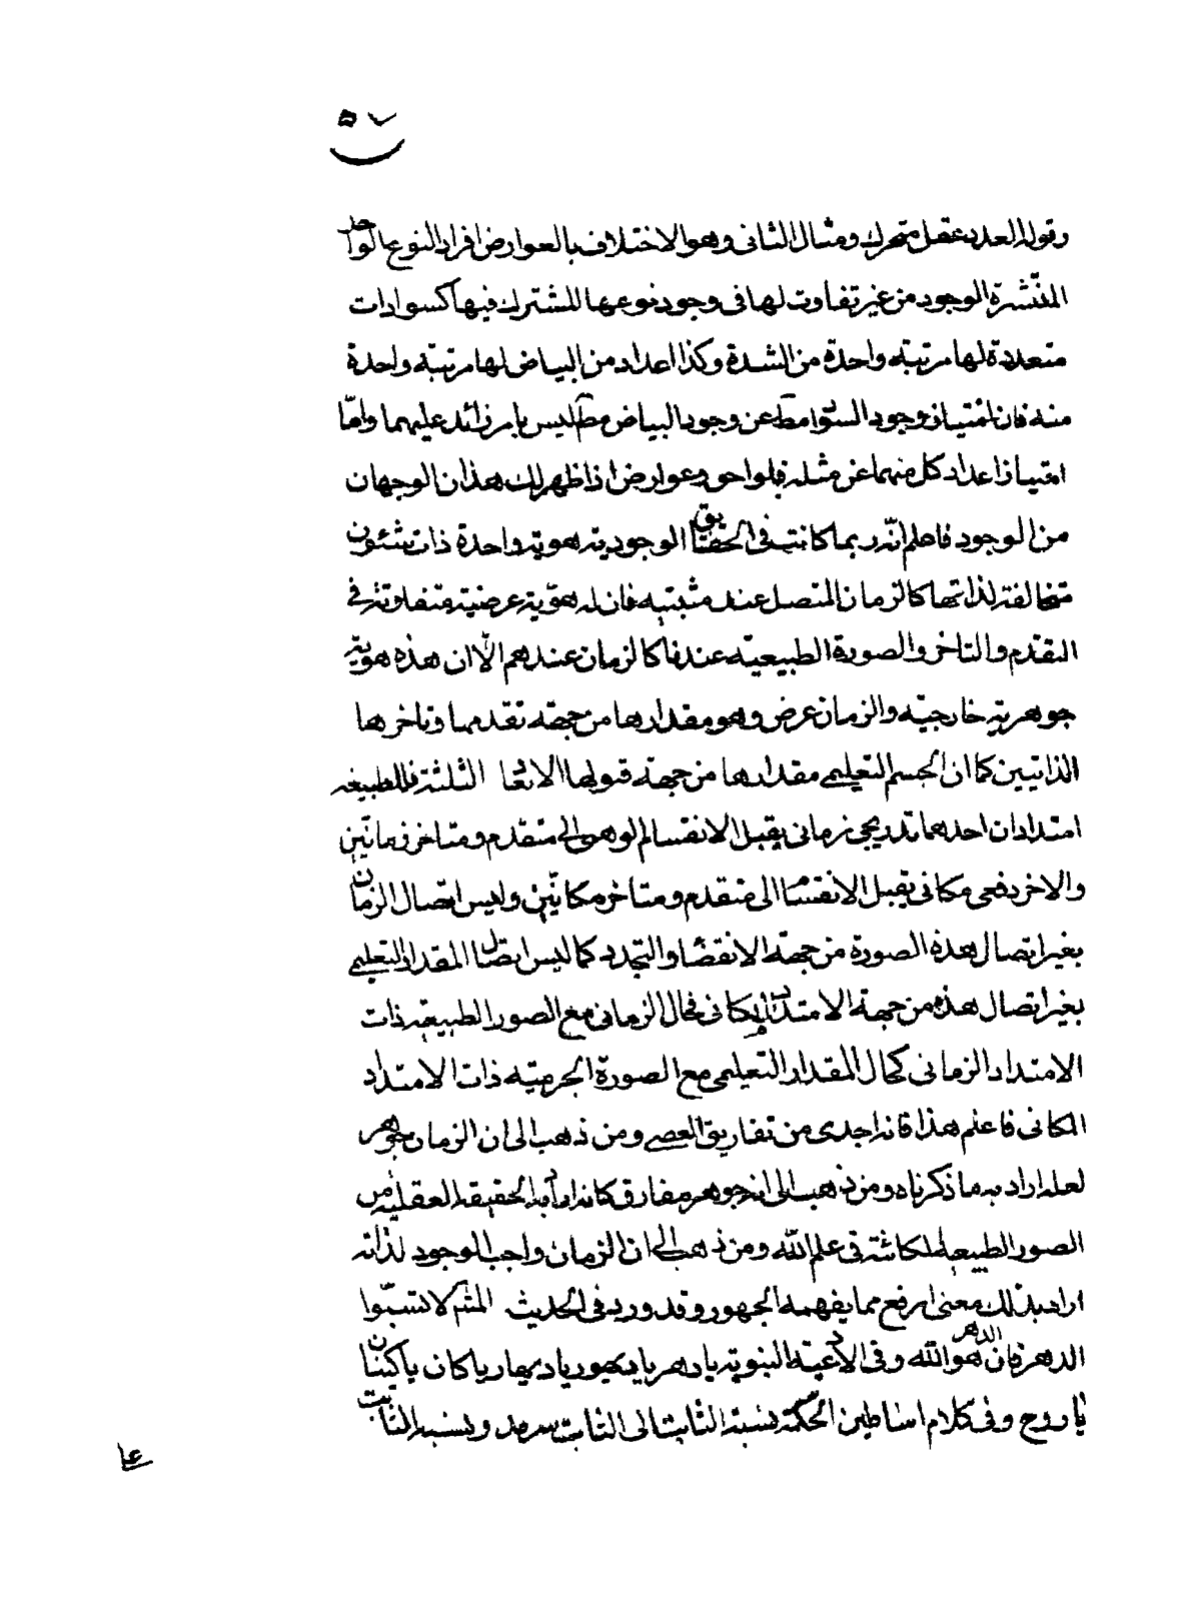 ٥٧
وقوله العدد عقل متحرك ومثال الثانى وهو الاختلاف بالعوارض افراد النوع الواحد
المنتشرة الوجود من غير تفاوت لها فى وجود نوعها المشترك فيها كسوادات
متعددة لها مرتبته واحدة من الشدة وكذا اعداد من البياض لها مرتبته واحدة
منه فان امتياز وجود السواد مط عن وجود البياض مط ليس بامر زائد عليهما واما
امتياز اعداد كل منهما عن مثله فبلواحق وعوارض اذا ظهر لك هذان الوجهان
من الوجود فاعلم انّه ربما كانت فى الحقايق الوجودية هوية واحدة ذات شئون
متخالفة لذاتها كالزمان المتصل عند مثبتيه فان له هوّية عرضية متفاوتة فى
التقدم والتاخر والصورة الطبيعيّه عندنا كالزمان عندهم الّا ان هذه هوية
جوهرية خارجيّه والزمان عرض وهو مقدارها من جهته تقدمها وتاخرها
الذاتيين كما ان الجسم التعليمى مقدارها من جهته قبولها الابعاد الثلثة فللطبيعه
امتدادان احدهما تدريجى زمانى يقبل الانقسام الوهمى الى متقدم ومتاخر زمانيّين
والاخر دفعى مكانى يقبل الانقسام الى متقدم ومتاخر مكانيّين وليس اتصال الزمان
بغير اتصال هذه الصورة من جهته الانقضاء والتجدد كما ليس اتصال المقدار التعليمى
بغير اتصال هذه من جهة الامتداد المكانى فحال الزمانى مع الصور الطبيعيه ذات
الامتداد الزمانى كحال المقدار التعليمى مع الصورة الجرميّه ذات الامتداد
المكانى فاعلم هذا فانه اجدى من تفاريق العصى ومن ذهب الى ان الزمان جوهر
لعله اراد به ما ذكرناه ومن ذهب الى انه جوهر مفارق كانه اراد به الحقيقه العقليه من
الصور الطبيعيه الكائنة فى علم الله ومن ذهب الى ان الزمان واجب الوجود لذاته
اراد بذلك معنى ارفع مما يفهمه الجمهور وقد ورد فى الحديث لا تسبّوا
الدهر فان الدهر هو الله وفى الادعيّه النبويّه يا دهر يا ديهور يا ديهار يا كان يا كينان
يا روح وفى كلام اساطين الحكمة نسبة الثابت الى الثابت سرمد ونسبه الثابت